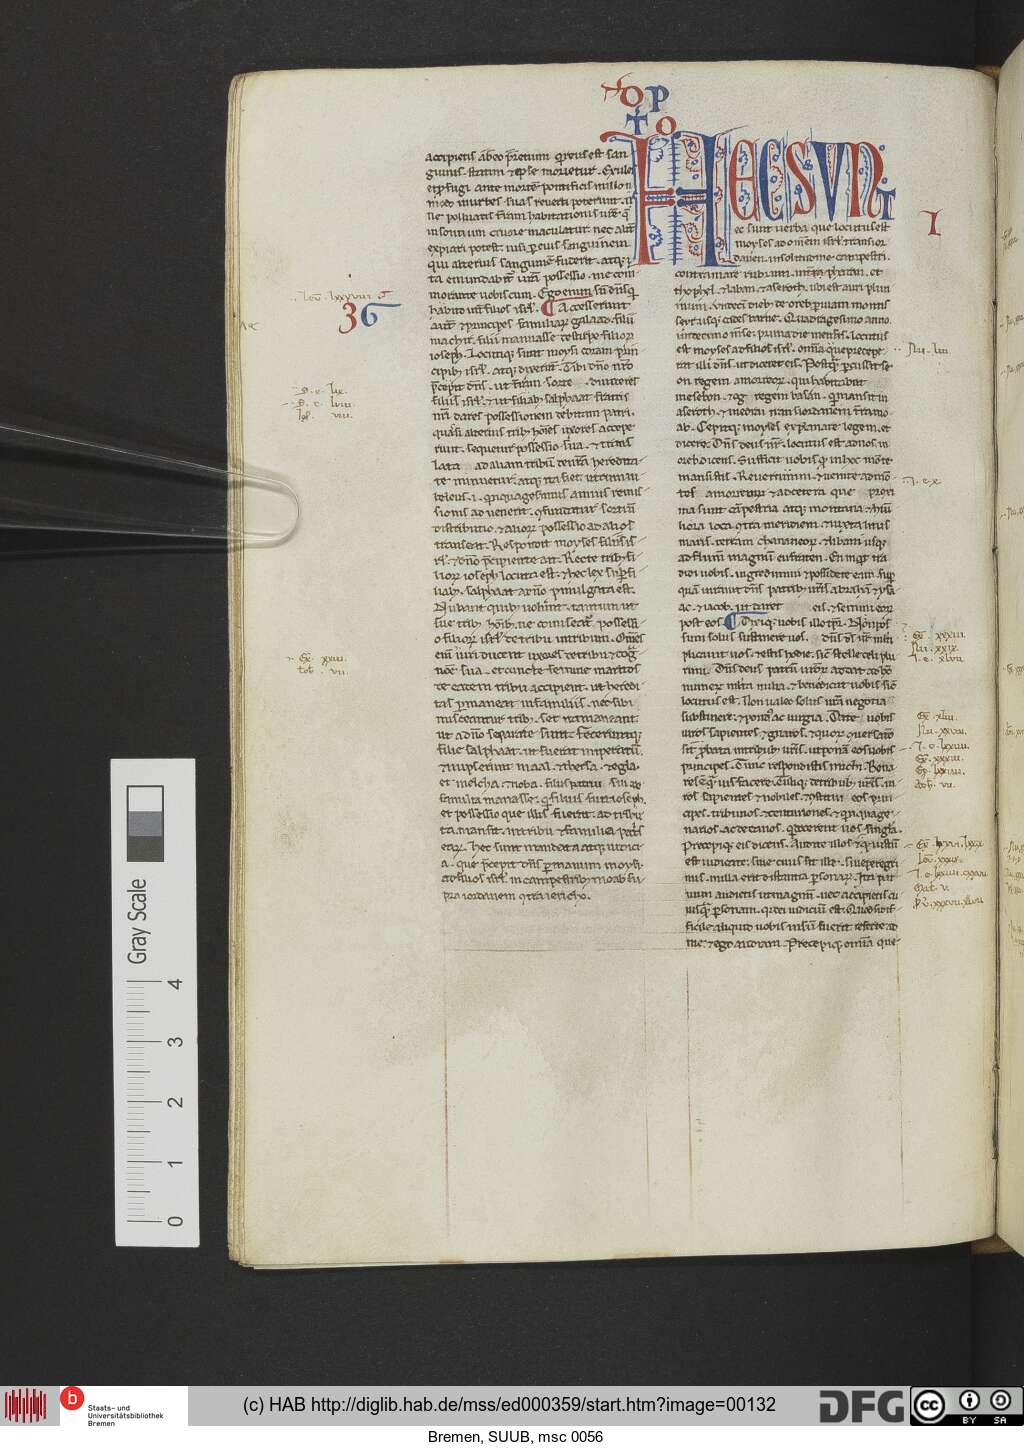 accipietis ab eo p̄cium qui reus est san
guinis. statim & ipse morietur. Exules
et p̄fugi ante mortē pontificis nullo
modo in urbes suas reverti poterunt.
insontium cruore maculatur. nec alit̄
expiari potest. nisi p eius sanguinem
qui alterius sanguinē fuderit. atq;
ta emundabit̄ vr̄a possessio. me com
morante vobiscum. Ego enim sū dn̄s q̄
habito int̄ filios isrl̄. Accesserunt
36
aut̄ & principes familiar̄ galaad. filii
machir. filii manasse de stirpe filior̄
ioseph. Locutiq; sunt moysi coram prin
cipib; isrl̄. atq; dixerunt. Tibi dn̄o nr̄o
p̄cepit dn̄s. ut t̄ram sorte divideres
filiis isrl̄. & ut filiab; salphaat fratris
nr̄i dares possessionem debitam patri.
quas si alterius trib; hoīes uxores accepe
rint. sequetur possessio sua. & trans
lata ad aliam tribū de nr̄a heredita
te minuetur. atq; ita fiet. ut cum iu
beleus .i. qinquagesimus annus remis
sionis advenerit. 9fundatur sortiū
distributio. & alior̄ possessio ad alios
transeat. Respondit moyses filiis is
rl̄. & dn̄o p̄cipiente ait. Recte trib; fi
lior̄ ioseph locuta est. & hec lex sup̄ fi
liab; salphaat a dn̄o p̄mulgata est.
Nubant quib; volunt. tantum ut
sue trib; hoīb;. ne 9misceat̄ possessi
o filior̄ isrl̄ de tribu in tribum. Om̄s
enī viri ducent uxores de tribu & cog
tione sua. et cuncte femine maritos
de eadem tribu accipient. ut heredi
tas p̄maneat in familiis. nec sibi
misceantur trib;. set ita maneant
ut a dn̄o separate sunt. Feceruntq;
filie salphaat. ut fuerat imperatū.
& nupserunt maala. & thersa. & egla.
et melcha. & noa. filiis patrui sui de
familia manasse. q̄ fuit filius ioseph.
et possessio que illis fuerat at̄tribu
ta. mansit in tribu & familia patris
ear̄. Hec sunt mandata atq; iudici
a. que p̄cepit dn̄s p manum moysi
ad filios isrl̄. in campestrib; moab su
pra iordanem 9tra iericho.
HEC SUNT
I
ec sunt verba que locutus est
moyses ad om̄em isrl̄. trans ior
danen. in solitudine campestri.
contra mare rubrum. int̄ pharan. et
thophel. & laban. & aseroth. ubi est auri plu
rimum. undecī dieb; de oreb p viam montis
seyr usq; cades barne. Quadragesimo anno.
undecimo mse. prima die mensis. locutus
est moyses ad filios isrl̄. omīa que precepe
rat illi dn̄s. ut diceret eis. Postq̄ p̄cussit se
on regem amorreor̄. qui habitabat
in esebon. & og regem basan. q̄ mansit in
aseroth. & in edrai trans iordanem in t̄ra mo
ab. Cepitq; moyses explanare legem. et
dicere. Dn̄s deus nr̄. locutus est ad nos in
oreb dicens. Sufficit vobis q̄ in hoc mōte
mansistis. Revertimini. & venite ad mō
tem amorreor̄ & ad cetera que proxi
ma sunt cāpestria atq; montana. & hūi
liora loca 9tra meridiem. & iuxta litus
maris. terram chananeor̄. & libani usq;
ad flumē magnū eufraten. En inq̄t tra
didi vobis. ingredimini & possidete eam. sup̄
quā iuravit dn̄s patrib; vr̄is abrahā & ysa
ac. & iacob. ut daret eis. & semini eor̄
post eos. Dixiq; vobis illo tp̄r. Nō pos
sum solus sustinere vos. dn̄s ds̄ nr̄ mlti
plicavit vos. & estis hodie. sic̄ stelle celi plu
rimi. Dn̄s deus patrū vr̄or̄ addat ad hūc
numer̄ mlta milia. & benedicat vobis sic̄
locutus est. Non valeo solus vr̄a negotia
sustinere. & pondus ac iurgia. Date vobis
viros sapientes & gnaros. & quor̄ 9versatio
sit p̄bata in tribub; vr̄is. ut ponā eos vobis
principes. Tunc respondistis michi. Bona
res ē. q̄m vis facere. Tuliq; de tribub; vr̄is. vi
ros sapientes & nobiles. & 9stitui eos prin
cipes. tribunos & centuriones. & qinquage
narios. ac decanos. q̄ docerent vos singla.
Precepiq; eis dicens. Audite illos. & q̄ iustū
est iudicate. sive civis sit ille. sive peregri
nus. nulla erit distantia p̄sonar̄. Ita par
vum audietis ut magnū. nec accipietis cu
iusq̄ p̄sonam. quia dei iudiciū est. Quod si dif
ficile aliquid vobis visū fuerit. referte ad
me. & ego audiam. Precepiq; omīa que
Gray Scale
4
3
2
1
0
Staats- und
Universitätsbibliothek
Bremen
(c) HAB http://diglib.hab.de/mss/ed000359/start.htm?image=00132
DFG
cc
BY SA
Bremen, SUUB, msc 0056